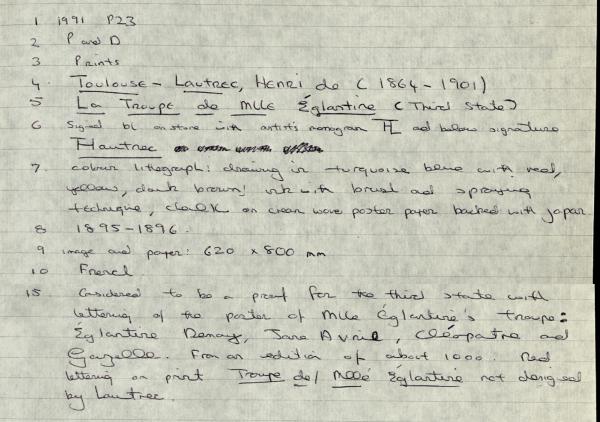 1 1991 P23
2 P and D
3 Prints
4. Toulouse-Lautrec, Henri de (1864-1901)
5 La Troupe de Mlle Églantine (Third State)
6 Signed bl on stone with artist's monogram HL and below signature
Hautrec
7. colour lithograph: drawing in turquoise blue with red,
yellow, dark brown! ink with brush and spraying
technique, chalk on cream wove poster paper backed with japan
8 1895-1896.
9 image and paper: 620 x 800 mm
10 French
15. Considered to be a proof for the third state with
lettering of the poster of Mlle Églantine's troupe:
Églantine Demay, Jane Avril, Cléopatre and
Gazelle. From an edition of about 1000. Red
lettering on print Troupe de/ Mlle Églantine not designed
by Lautrec.